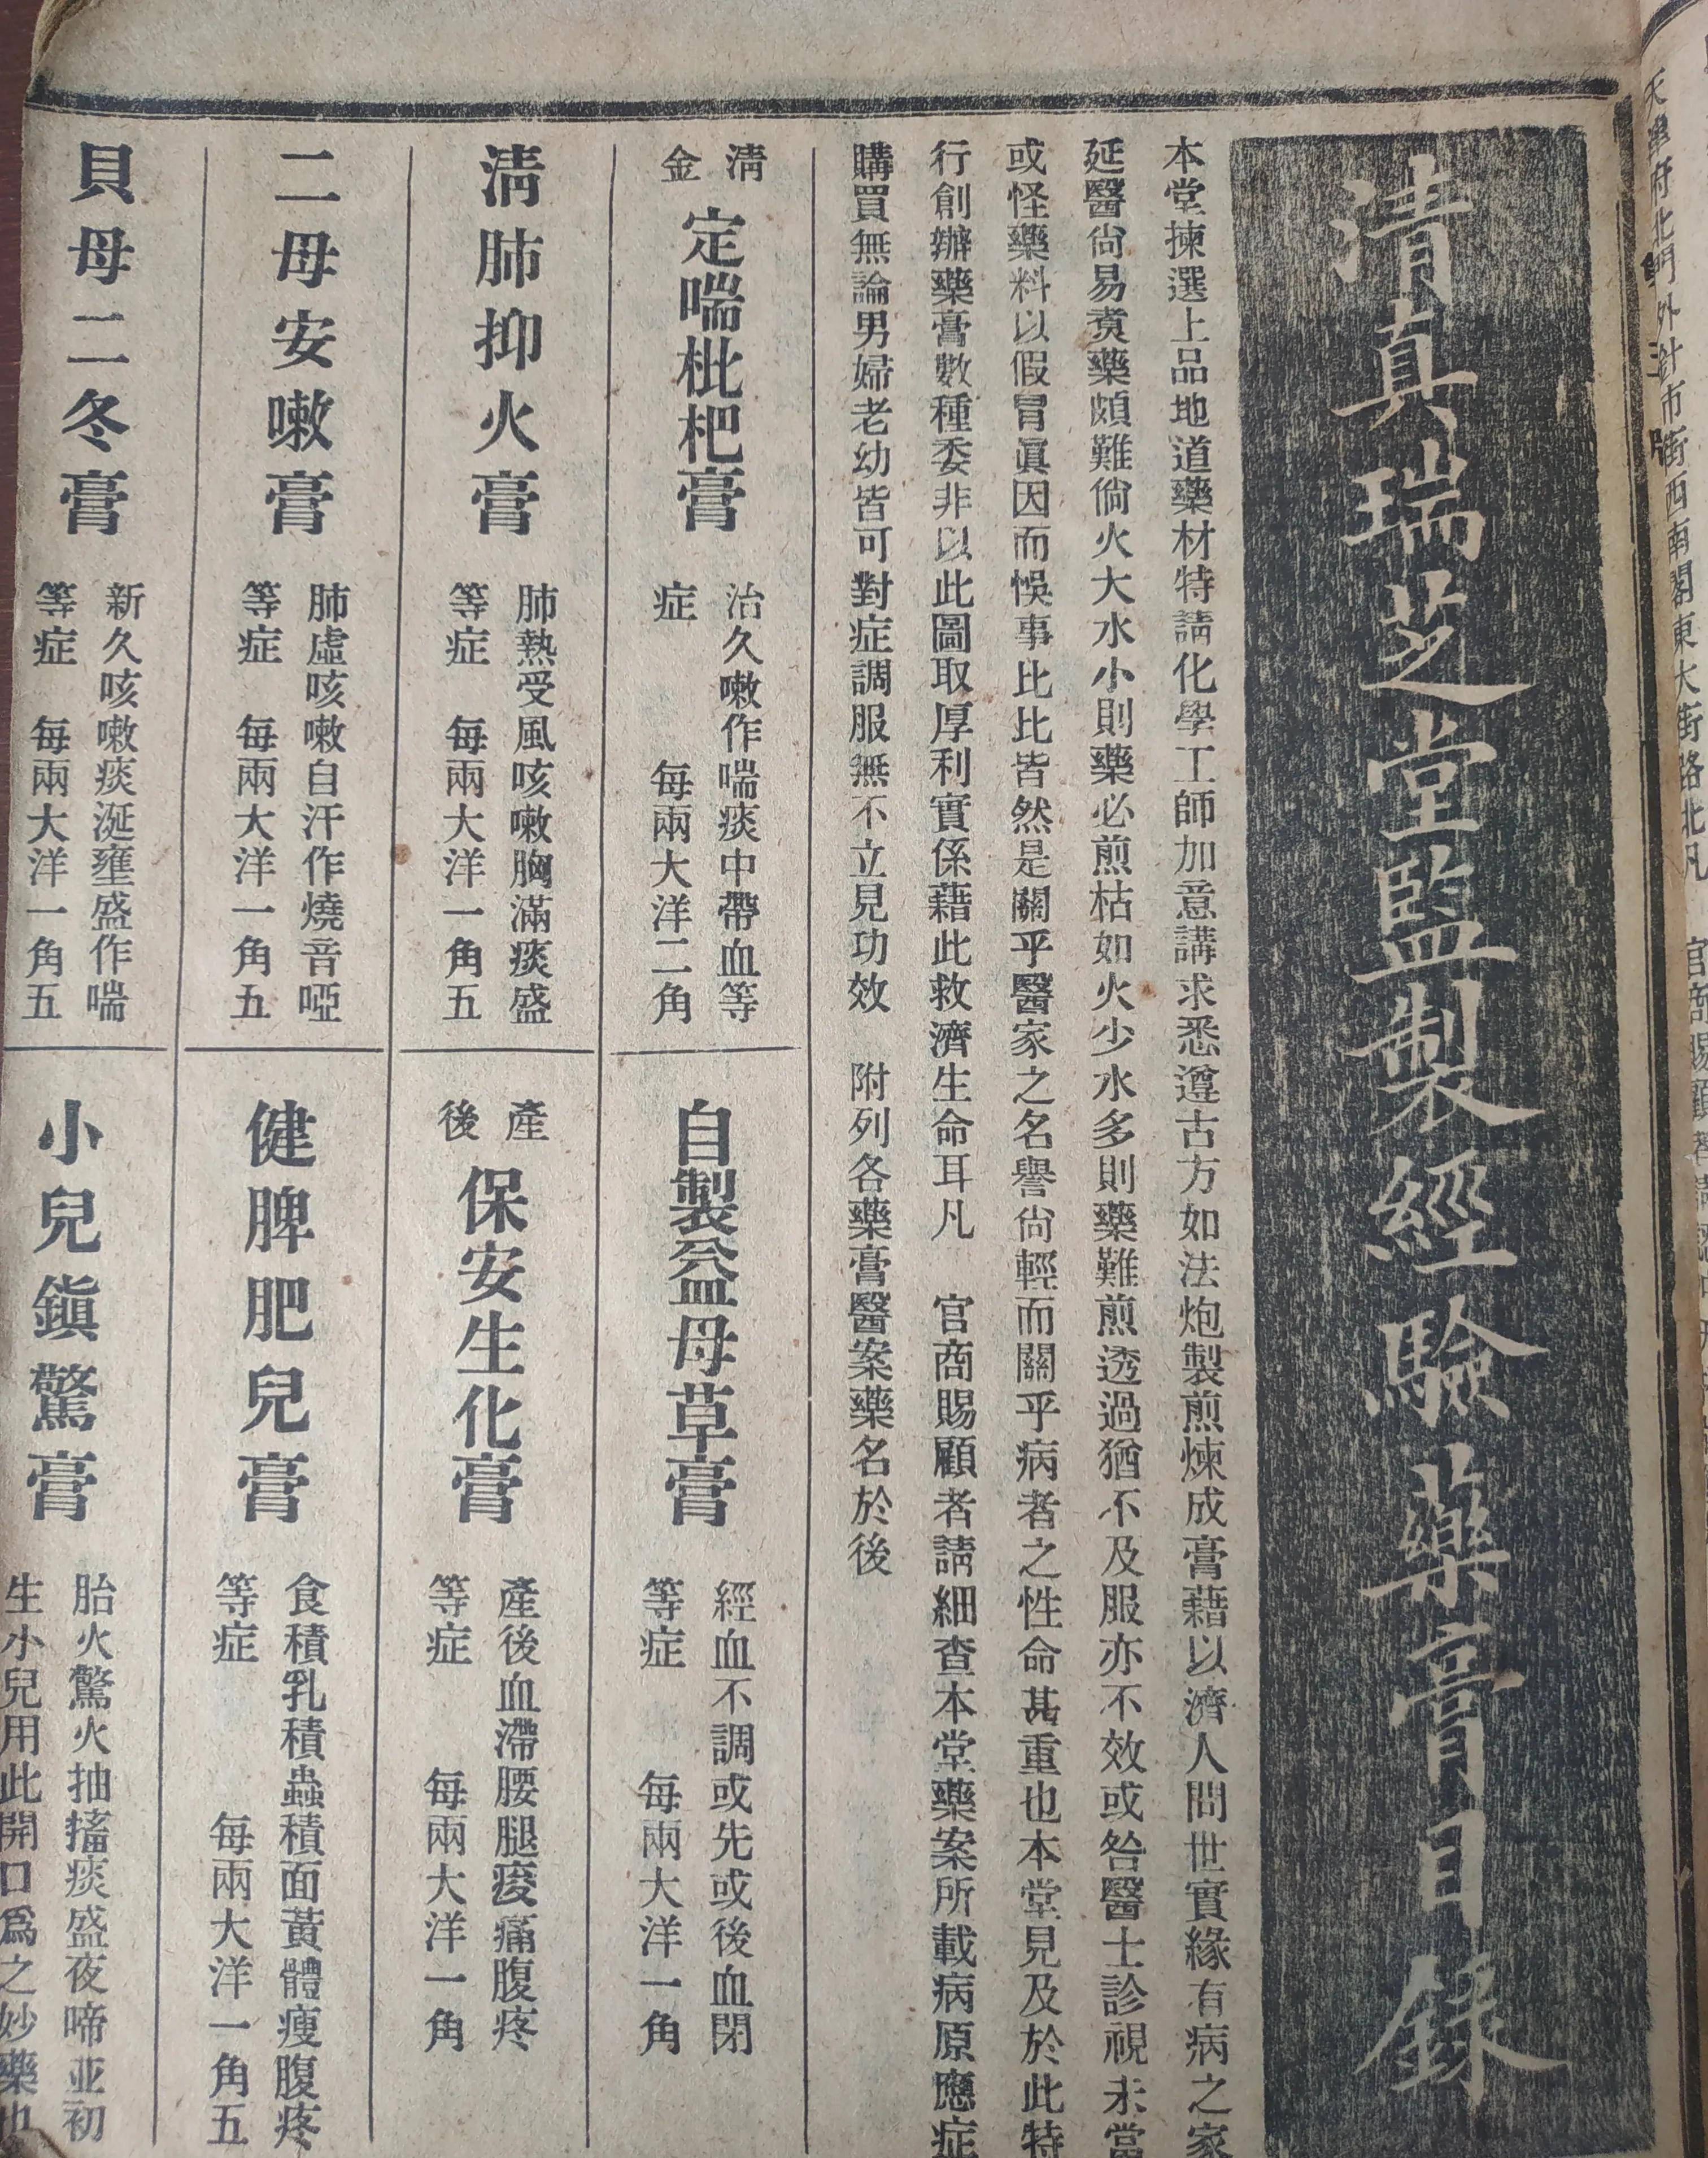 天津府北門外針市街西南閣東大街路北凡
清真瑞芝堂監製經驗藥膏目錄
本堂揀選上品地道藥材特請化學工師加意講求悉遵古方如法炮製煎煉成膏藉以濟人問世實緣有病之家
延醫尙易煑藥頗難倘火大水小則藥必煎枯如火少水多則藥難煎透過猶不及服亦不效或咎醫士診視未當
或怪藥料以假冒眞因而悞事比比皆然是關乎醫家之名譽尙輕而關乎病者之性命甚重也本堂見及於此特
行創辦藥膏數種委非以此圖取厚利實係藉此救濟生命耳凡　官商賜顧者請細查本堂藥案所載病原應症
購買無論男婦老幼皆可對症調服無不立見功效　附列各藥膏醫案藥名於後
清金定喘枇杷膏
治久嗽作喘痰中帶血等
症　每兩大洋二角
自製益母草膏
經血不調或先或後血閉
等症　每兩大洋一角
淸肺抑火膏
肺熱受風咳嗽胸滿痰盛
等症　每兩大洋一角五
產後保安生化膏
產後血滯腰腿痠痛腹疼
等症　每兩大洋一角
二母安嗽膏
肺虛咳嗽自汗作燒音啞
等症　每兩大洋一角五
健脾肥兒膏
食積乳積蟲積面黃體瘦腹疼
等症　每兩大洋一角五
貝母二冬膏
新久咳嗽痰涎壅盛作喘
等症　每兩大洋一角五
小兒鎭驚膏
胎火驚火抽搐痰盛夜啼並初
生小兒用此開口爲之妙藥也